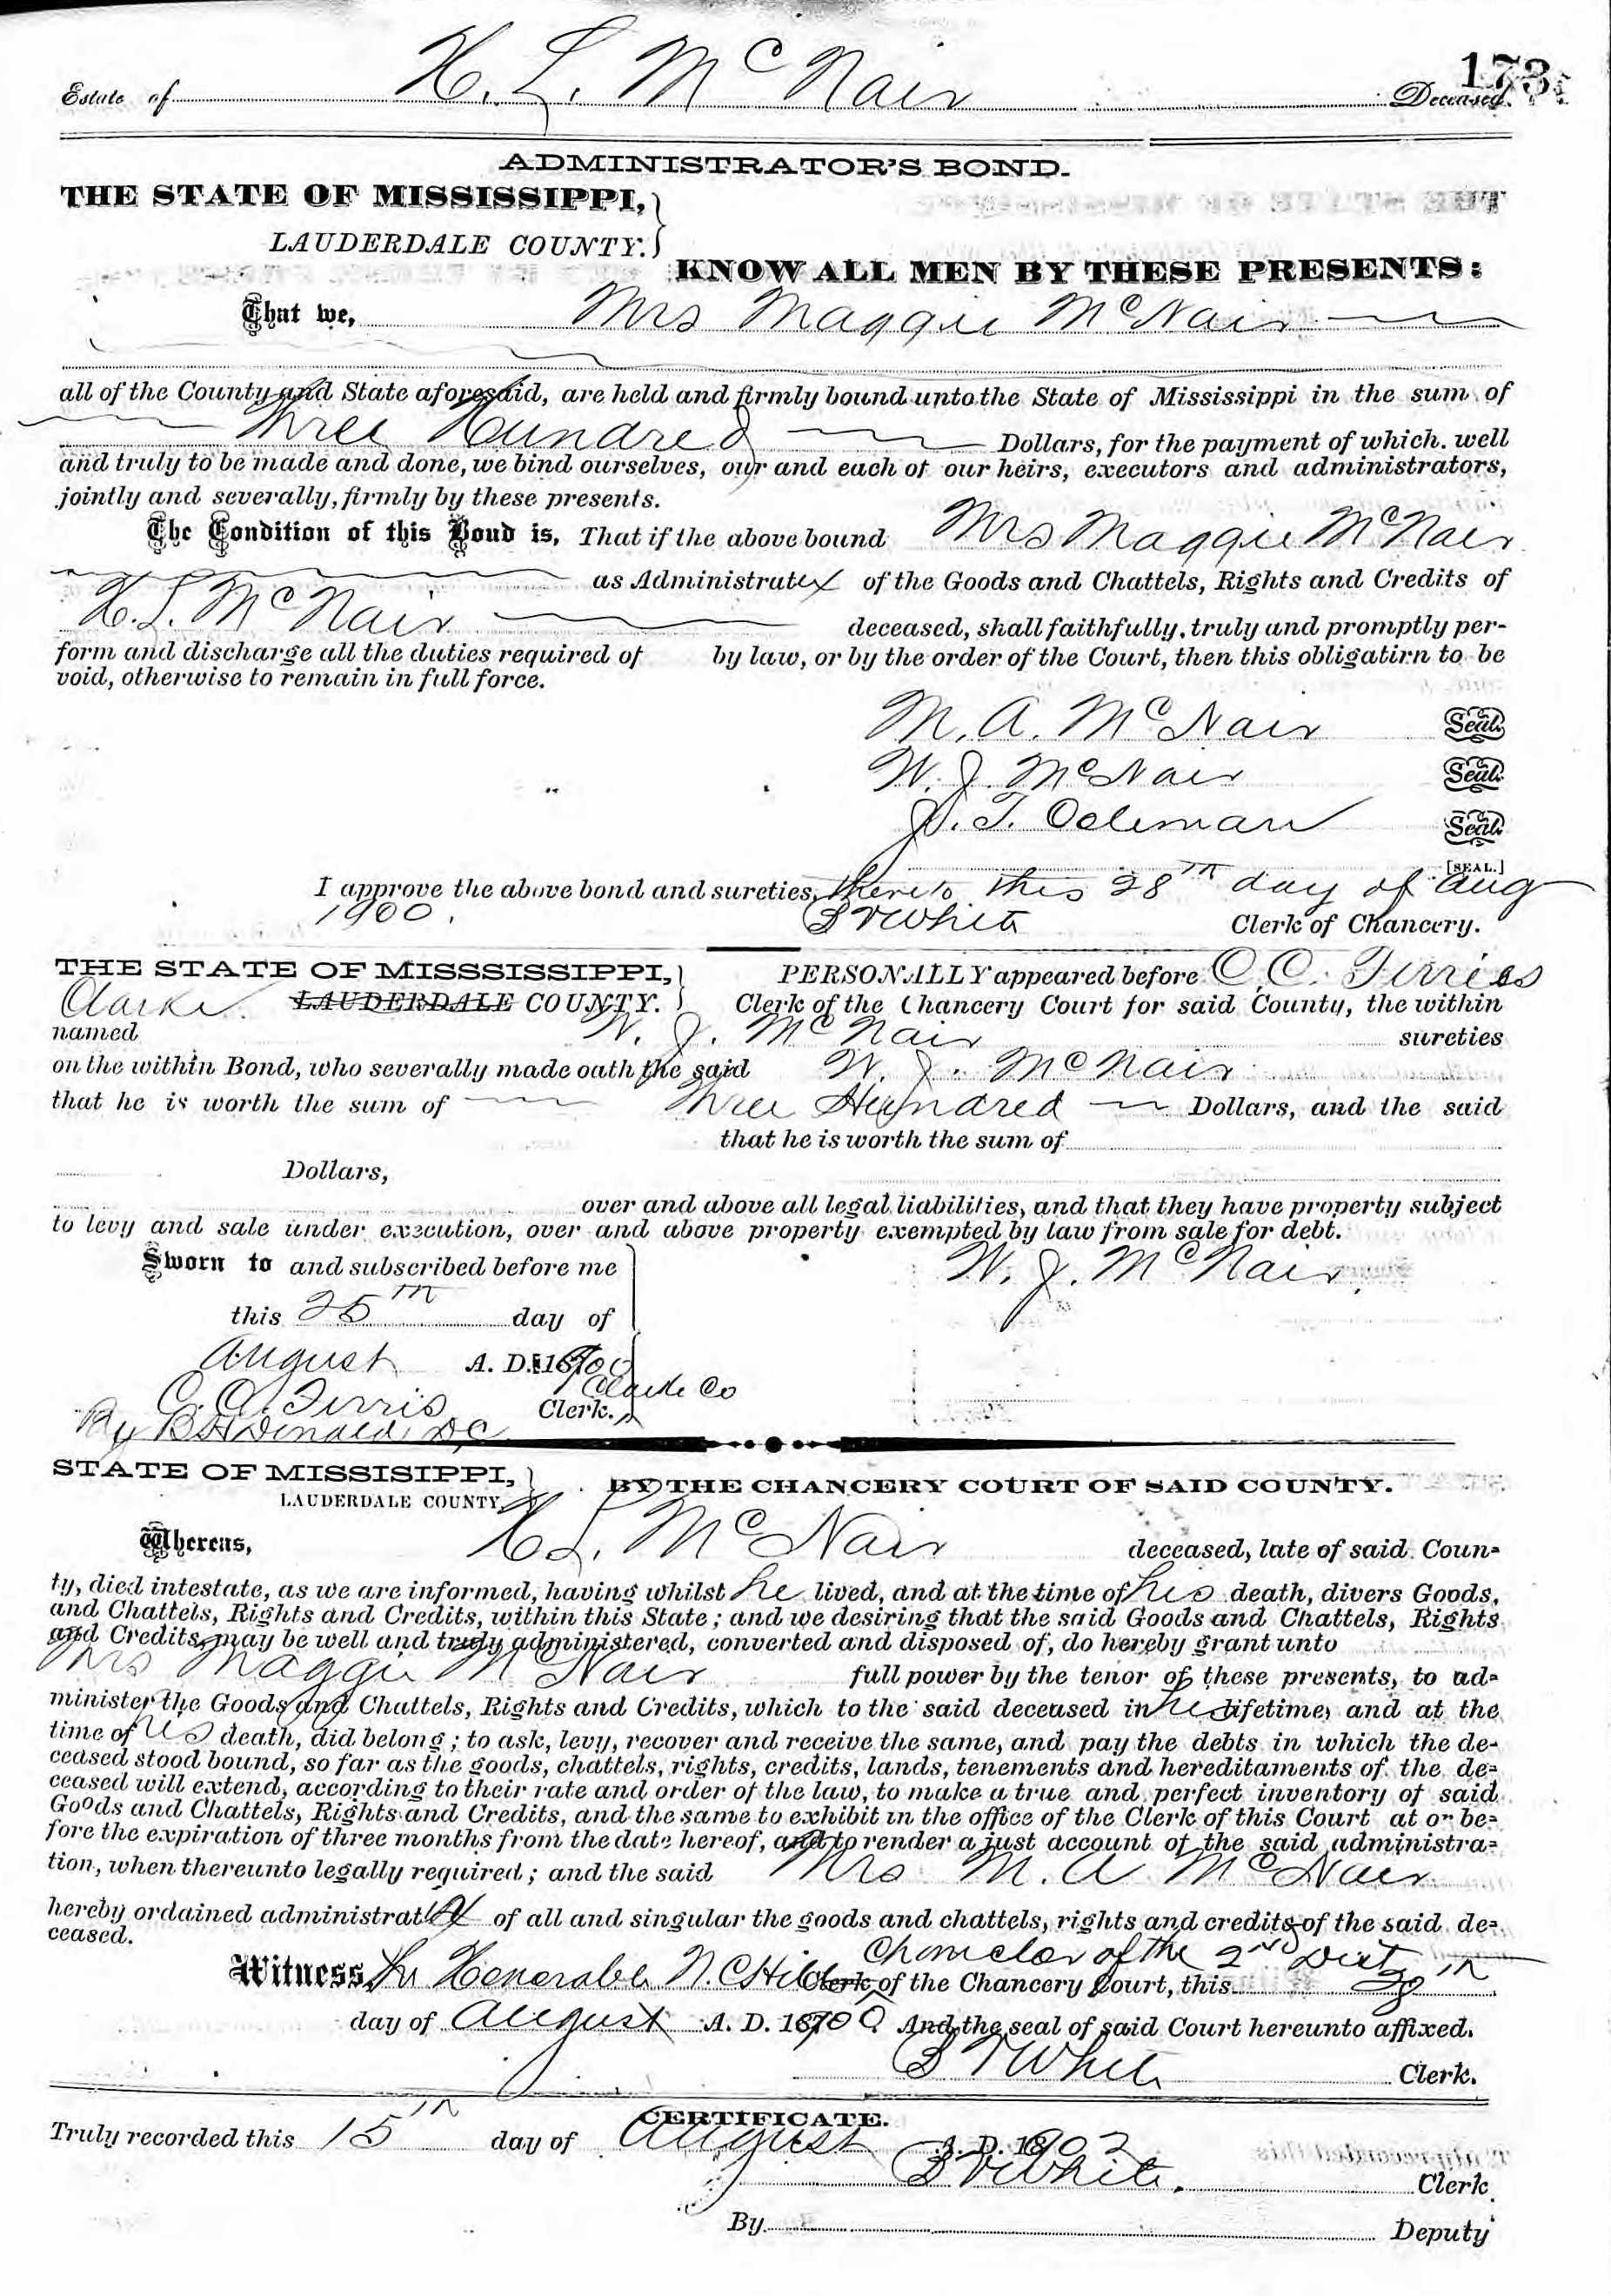 Estate of H. L. McNair Deceased. 173
ADMINISTRATOR'S BOND.
THE STATE OF MISSISSIPPI,
LAUDERDALE COUNTY.
KNOW ALL MEN BY THESE PRESENTS:
That we, Mrs Maggie McNair
all of the County and State aforesaid, are held and firmly bound unto the State of Mississippi in the sum of
Three Hundred Dollars, for the payment of which. well
and truly to be made and done, we bind ourselves, our and each of our heirs, executors and administrators,
jointly and severally, firmly by these presents.
The Condition of this Bond is, That if the above bound Mrs Maggie McNair
as Administratex of the Goods and Chattels, Rights and Credits of
H. L. McNair deceased, shall faithfully, truly and promptly per-
form and discharge all the duties required of by law, or by the order of the Court, then this obligatirn to be
void, otherwise to remain in full force.
M. A. McNair Seal.
W. J. McNair Seal.
J. T. Coleman Seal.
[SEAL.]
I approve the above bond and sureties, thereto this 28th day of Aug
1900. Clerk of Chancery.
THE STATE OF MISSSISSIPPI, PERSONALLY appeared before C. C. Ferriss
Clarke LAUDERDALE COUNTY. Clerk of the Chancery Court for said County, the within
named W. J. McNair sureties
on the within Bond, who severally made oath the said W. J. McNair
that he is worth the sum of Three Hundred Dollars, and the said
that he is worth the sum of
Dollars,
over and above all legal liabilities, and that they have property subject
to levy and sale under execution, over and above property exempted by law from sale for debt.
Sworn to and subscribed before me W. J. McNair
this 25th day of
August A. D. 1900
Clarke Co
C. C. Ferris Clerk.
By Donald, D.C.
STATE OF MISSISIPPI, BY THE CHANCERY COURT OF SAID COUNTY.
LAUDERDALE COUNTY,
Whereas, H L. McNair deceased, late of said Coun-
ty, died intestate, as we are informed, having whilst he lived, and at the time of his death, divers Goods,
and Chattels, Rights and Credits, within this State; and we desiring that the said Goods and Chattels, Rights
and Credits, may be well and truly administered, converted and disposed of, do hereby grant unto
Mrs Maggie McNair full power by the tenor of these presents, to ad-
minister the Goods and Chattels, Rights and Credits, which to the said deceased in his lifetime, and at the
time of his death, did belong; to ask, levy, recover and receive the same, and pay the debts in which the de-
ceased stood bound, so far as the goods, chattels, rights, credits, lands, tenements and hereditaments of the de-
ceased will extend, according to their rate and order of the law, to make a true and perfect inventory of said
Goods and Chattels, Rights and Credits, and the same to exhibit in the office of the Clerk of this Court at or be-
fore the expiration of three months from the date hereof, and to render a just account of the said administra-
tion, when thereunto legally required; and the said Mrs M. A McNair
hereby ordained administratix of all and singular the goods and chattels, rights and credits of the said de-
ceased.
Chancelor of the 2nd Dist
Witness, the Honorable N. C Hill Clerk of the Chancery Court, this 28th
day of August A. D. 1900. And the seal of said Court hereunto affixed.
White Clerk.
CERTIFICATE.
Truly recorded this 15th day of August A. D. 1902
White. Clerk
By Deputy